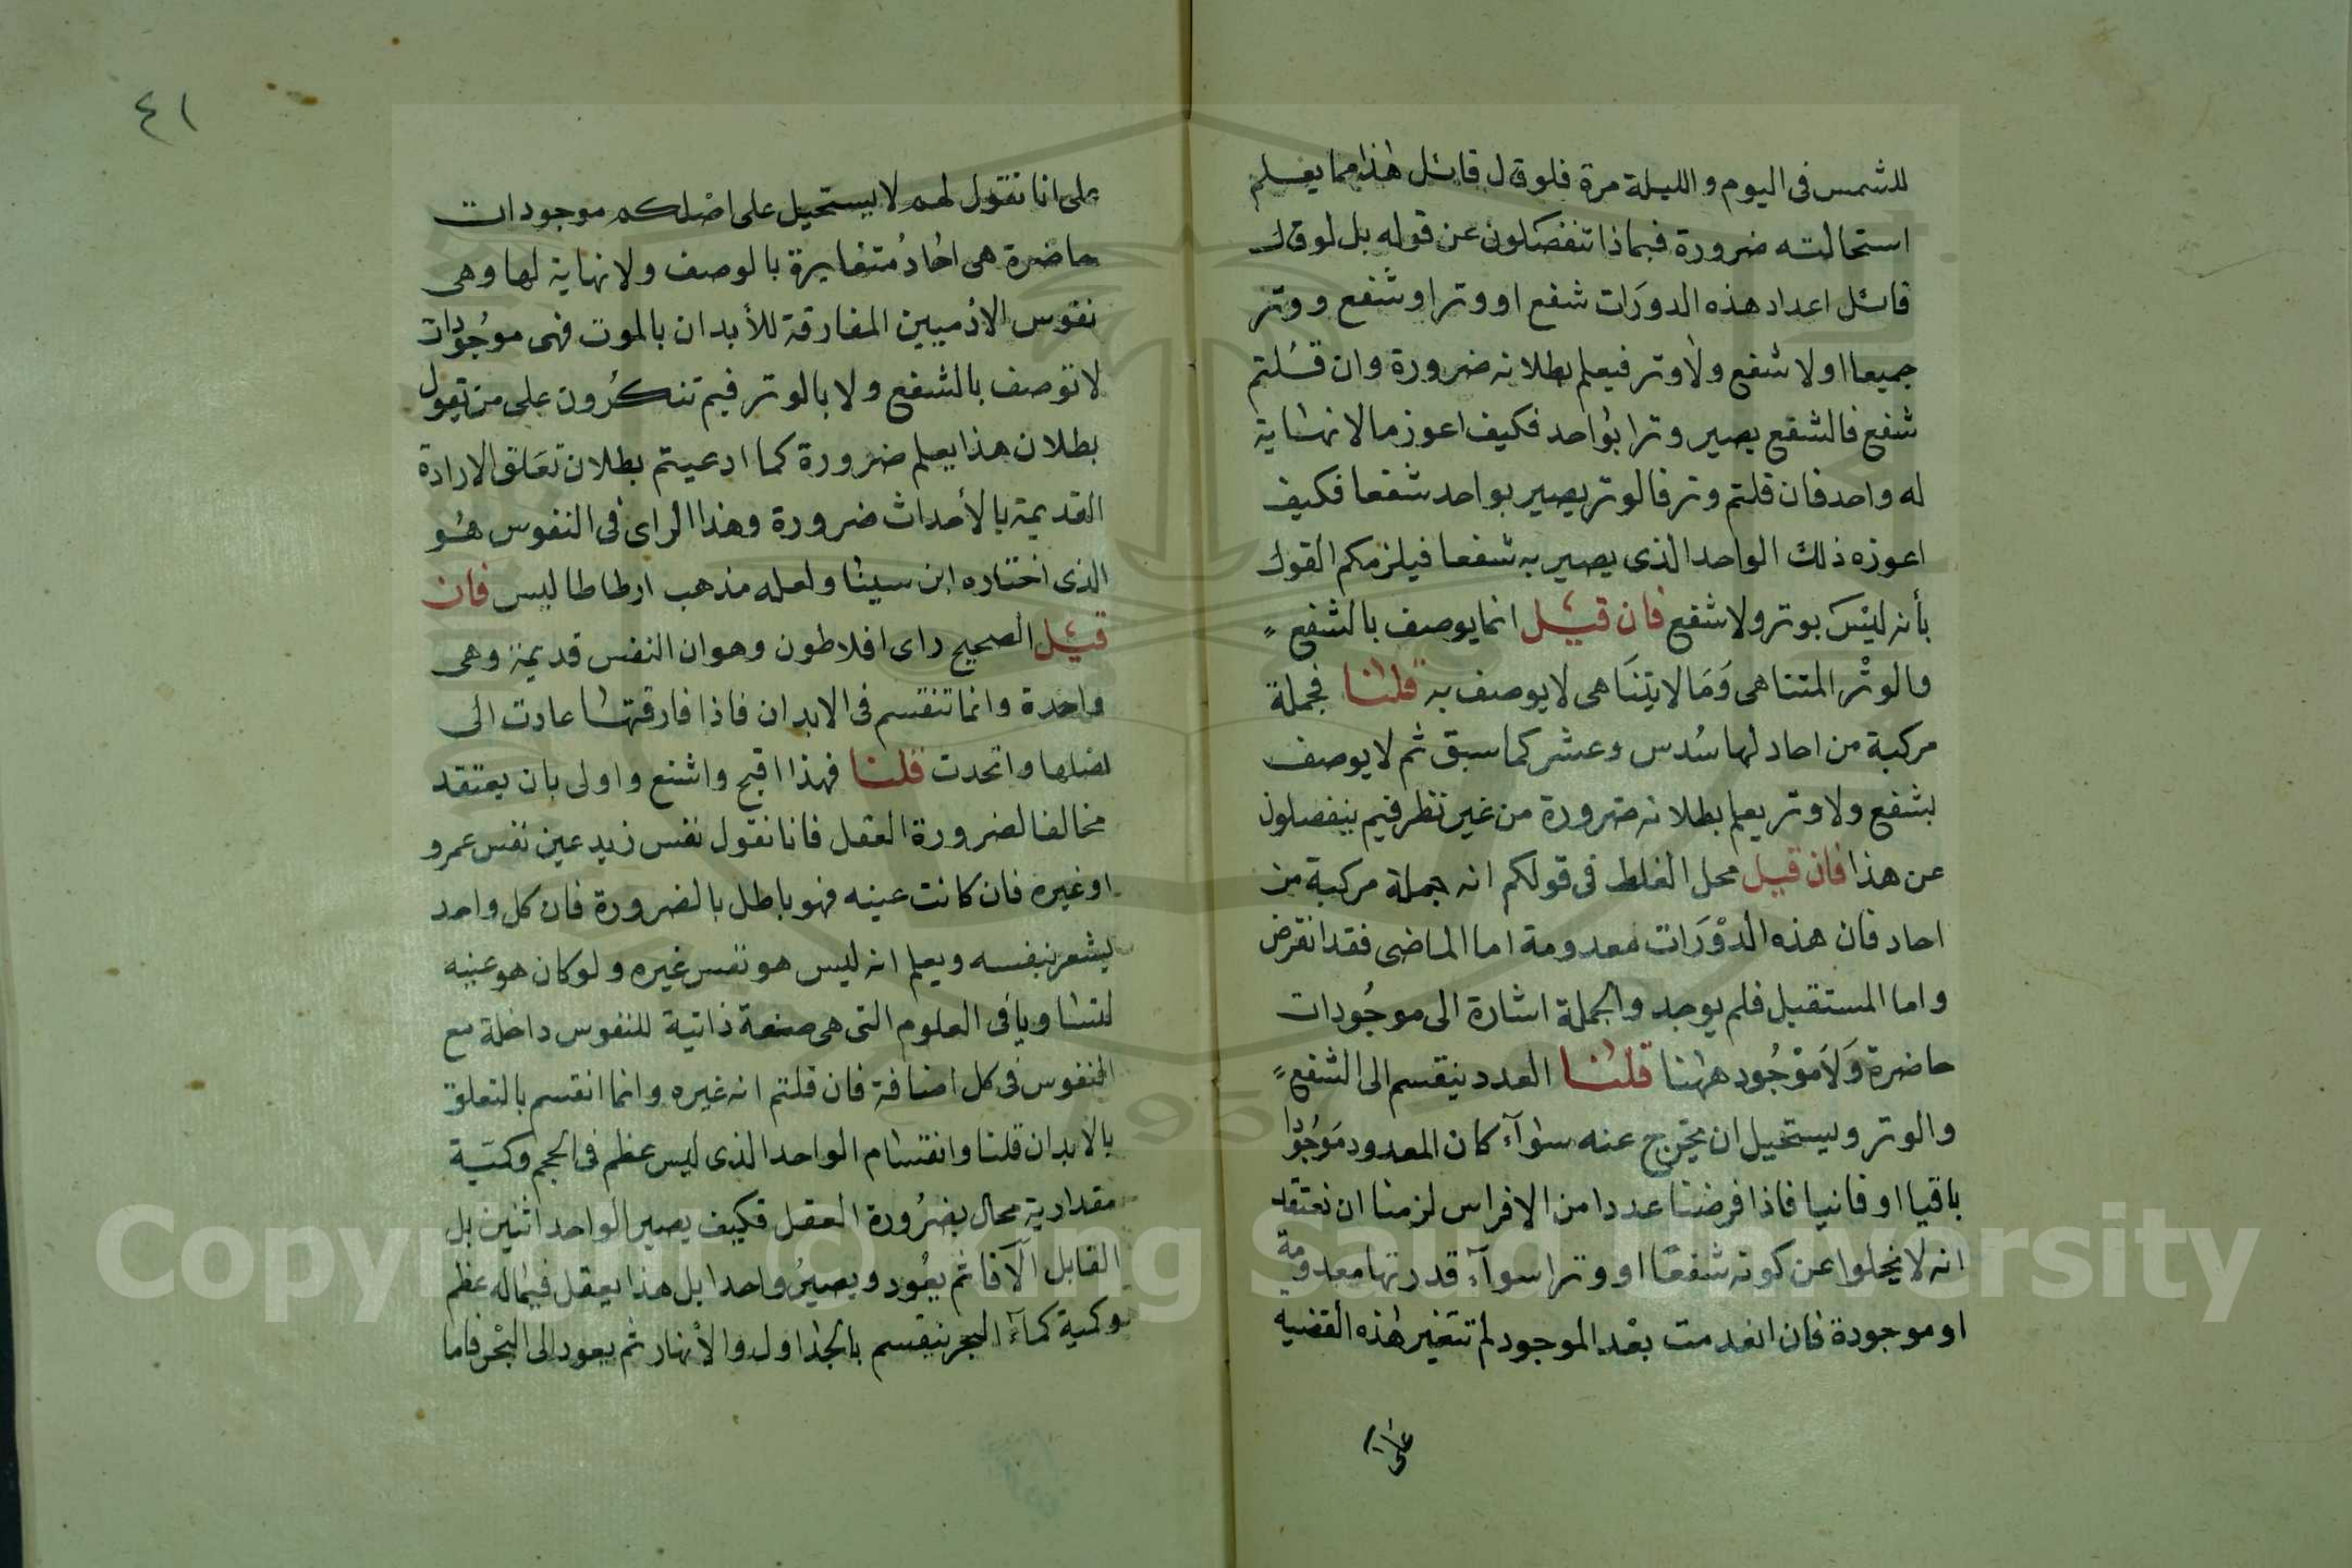 للشمس في اليوم والليلة مرة فلو قال قائل هذا مما يعلم
استحالته ضرورة فبماذا تنفصلون عن قوله بل لو قال
قائل اعداد هذه الدورات شفع او وتر او شفع ووتر
جميعا او لا شفع ولا وتر فيعلم بطلانه ضرورة وان قلتم
شفع فالشفع يصير وترا بواحد فكيف اعوز ما لا نهاية
له واحد فان قلتم وتر فالوتر يصير بواحد شفعا فكيف
اعوزه ذلك الواحد الذي يصير به شفعا فيلزمكم القول
بأنه ليس بوتر ولا شفع فان قيل انما يوصف بالشفع
والوتر المتناهي وما لا يتناهي لا يوصف به قلنا فجملة
مركبة من احاد لها سدس وعشر كما سبق ثم لا يوصف
بشفع ولا وتر يعلم بطلانه ضرورة من غير نظر فبم ينفصلون
عن هذا فان قيل محل الغلط في قولكم انه جملة مركبة من
احاد فان هذه الدورات معدومة اما الماضي فقد انقرض
واما المستقبل فلم يوجد والجملة اشارة الى موجودات
حاضرة ولا موجود ههنا قلنا العدد ينقسم الى الشفع
والوتر ويستحيل ان يخرج عنه سواء كان المعدود موجودا
باقيا او فانيا فاذا فرضنا عددا من الافراس لزمنا ان نعتقد
انه لا يخلوا عن كونه شفعا او وترا سوآء قدرتها معدومة
او موجودة فان انعدمت بعد الموجود لم تتغير هذه القضيه
على انا
٤١
على انا نقول لهم لا يستحيل على اصلكم موجودات
حاضرة هي احاد متغايرة بالوصف ولا نهاية لها وهي
نفوس الادميين المفارقة للأبدان بالموت فهي موجودات
لا توصف بالشفع ولا بالوتر فبم تنكرون على من يقول
بطلان هذا يعلم ضرورة كما ادعيتم بطلان تعلق الارادة
القديمة بالأحداث ضرورة وهذا الراي في النفوس هو
الذي اختاره ابن سينا ولعله مذهب ارطاطاليس فان
قيل الصحيح راى افلاطون وهو ان النفس قديمة وهي
واحدة وانما تنقسم في الابدان فاذا فارقتها عادت الى
اصلها واتحدت قلنا فهذا اقبح واشنع واولى بان يعتقد
مخالفا لضرورة العقل فانا نقول نفس زيد عين نفس عمرو
او غيره فان كانت عينه فهو باطل بالضرورة فان كل واحد
يشعر بنفسه ويعلم انه ليس هو نفس غيره ولو كان هو عينه
لتساويا في العلوم التي هي صفة ذاتية للنفوس داخلة مع
النفوس في كل اضافة فان قلتم انه غيره وانما انقسم بالتعلق
بالابدان قلنا وانقسام الواحد الذي ليس عظم في الحجم وكمية
مقدارية محال بضرورة العقل فكيف يصير الواحد اثنين بل
القابل آلآفا ثم يعود ويصير واحدا بل هذا يعقل فيما له عظم
وكمية كمآء البحر ينقسم بالجداول والانهار ثم يعود الى البحر فاما
Copyright © King Saud University
1957